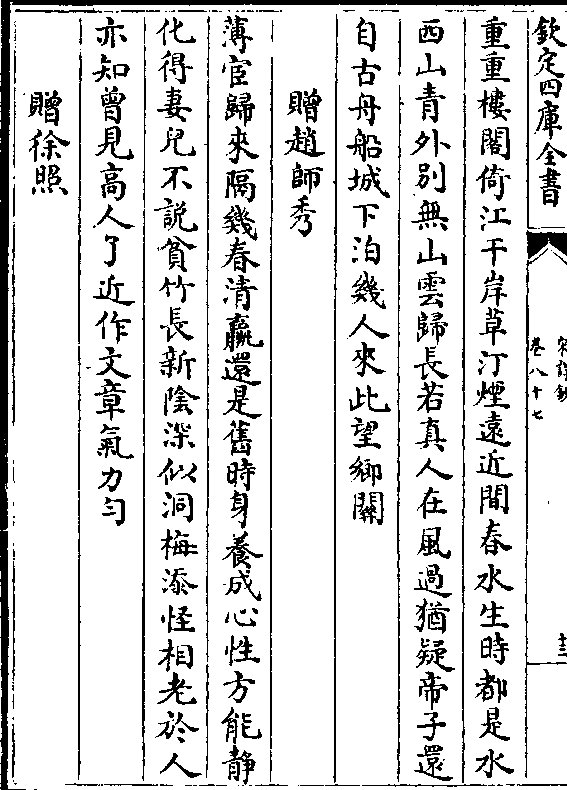 欽定四庫全書
宋詩鈔
卷八十七
重重樓閣倚江干岸草汀煙遠近間春水生時都是水
西山青外別無山雲歸長若真人在風過猶疑帝子還
自古舟船城下泊幾人來此望鄉關
贈趙師秀
薄宦歸來隔幾春清羸還是舊時身養成心性方能靜
化得妻兒不説貧竹長新陰深似洞梅添怪相老於人
亦知曾見高人了近作文章氣力勻
贈徐照